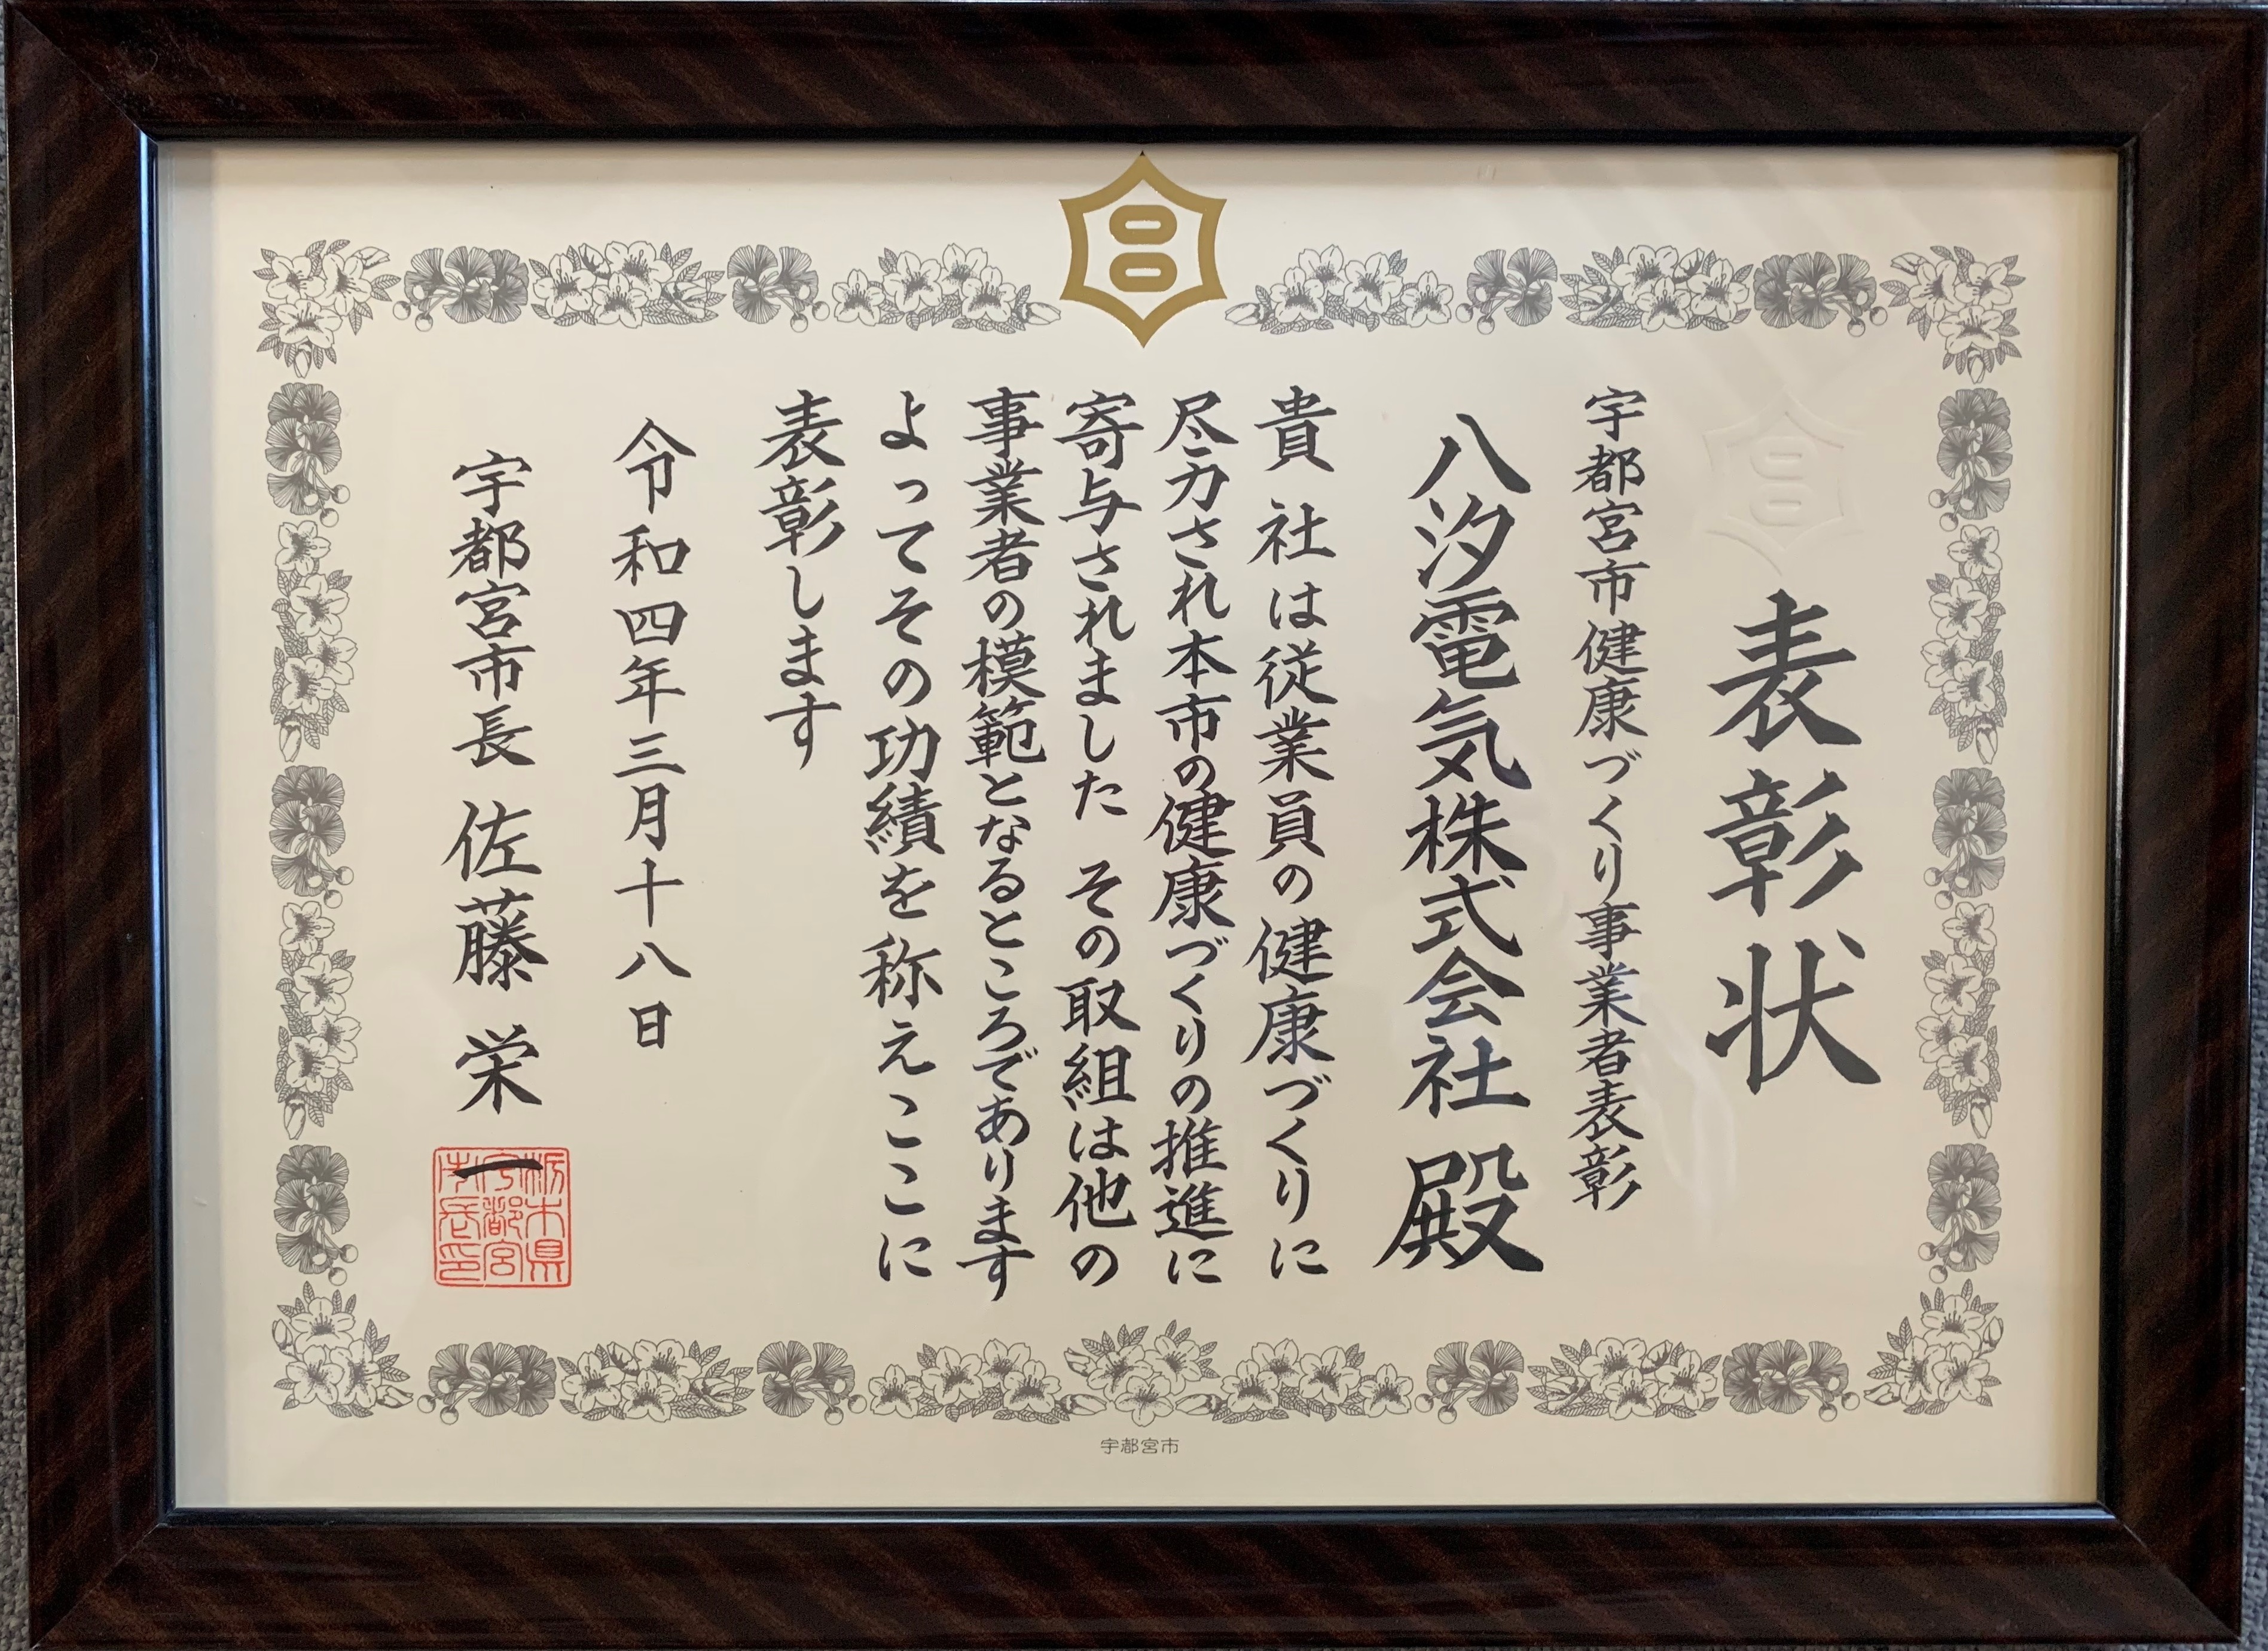 表彰状
宇都宮市健康づくり事業者表彰
八汐電気株式会社 殿
貴社は従業員の健康づくりに
尽力され本市の健康づくりの推進に
寄与されました その取組は他の
事業者の模範となるところであります
よってその功績を称えここに
表彰します
令和四年三月十八日
宇都宮市長 佐藤栄一
栃木県
宇都宮
市長印
宇都宮市